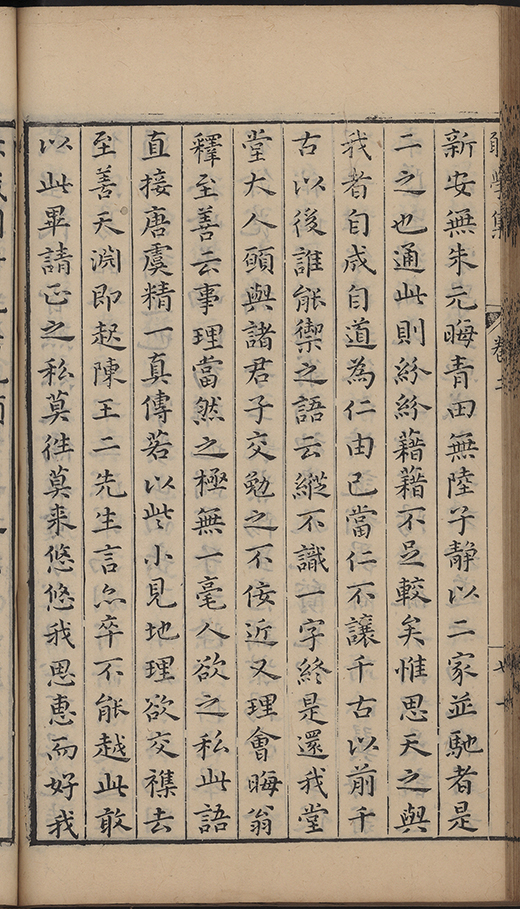 新安無朱元晦青田無陸子靜以二家並馳者是
二之也通此則紛紛藉藉不足較矣惟思天之與
我者自成自道為仁由己當仁不讓千古以前千
古以後誰能禦之語云縱不識一字終是還我堂
堂大人頭與諸君子交勉之不佞近又理會晦翁
釋至善云事理當然之極無一毫人欲之私此語
直接唐虞精一真傳若以些小見地理欲交襍去
至善天淵即起陳王二先生言亦卒不能越此敢
以此畢請正之私莫徃莫来悠悠我思惠而好我